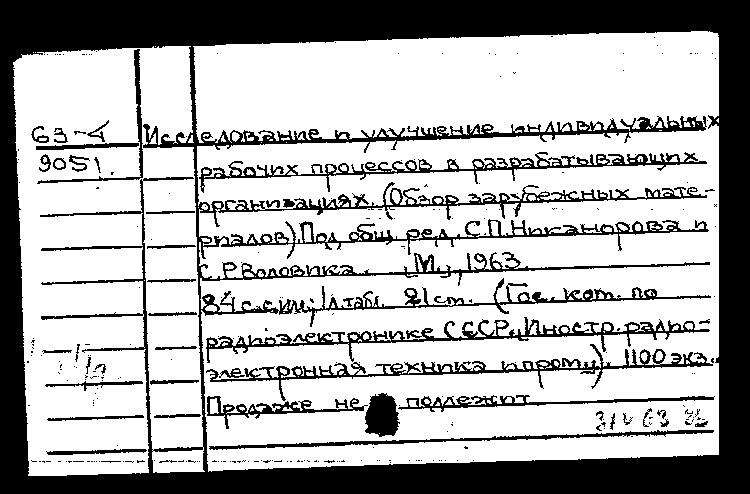 63-4 Исследование и улучшение индивидуальных
9051. рабочих процессов в разрабатывающих
организациях. (Обзор зарубежных мате-
риалов). Под общ. ред. С.П. Никанорова и
С.Р. Воловика. [М.], 1963.
84 с. с ил.; 1 л. табл. 21 см. (Гос. ком. по
радиоэлектронике СССР. Иностр. радио-
электронная техника и пром.). 1100 экз.
Продаже не подлежит
31 V 63